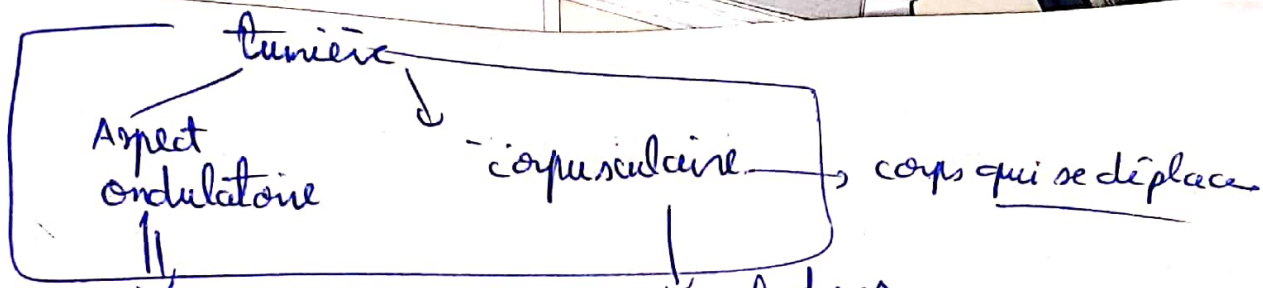 Lumière
Aspect
ondulatoire
- corpusculaire → corps qui se déplace